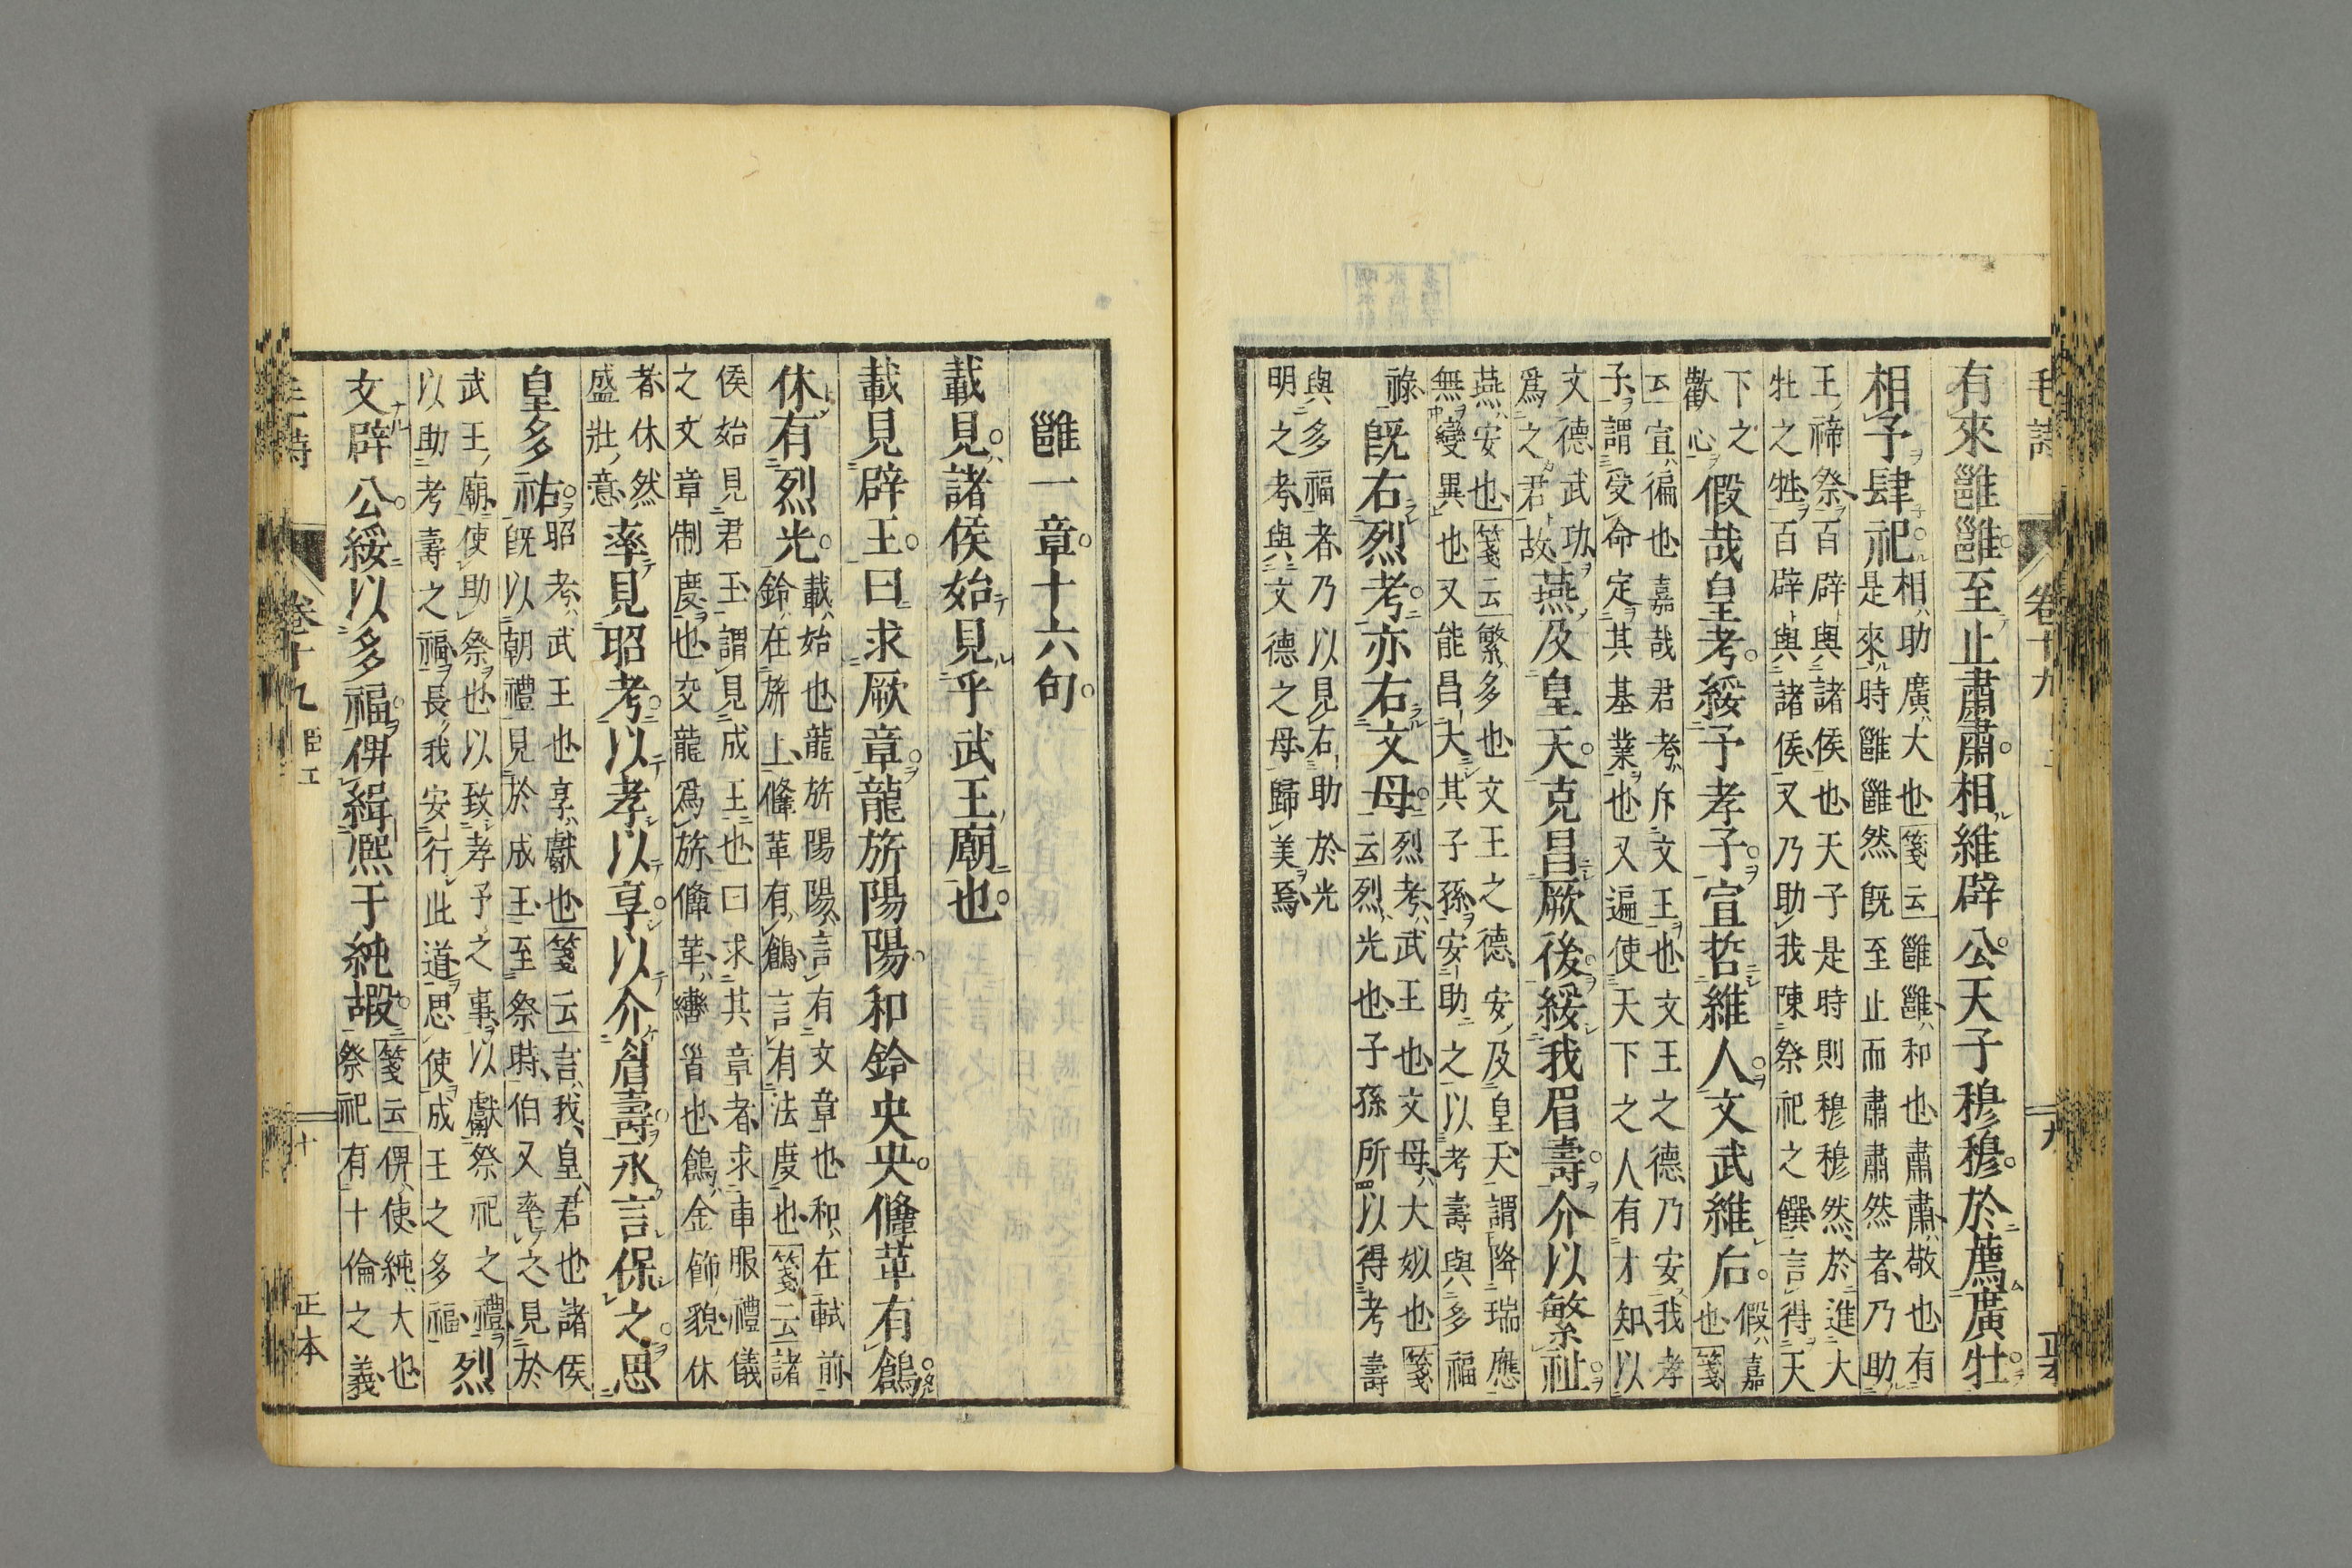 毛詩 卷十九 九
有來雝雝至止肅肅相維辟公天子穆穆於薦廣牡
相予肆祀
相助廣大也箋云雝雝和也肅肅敬也有
是來時雝雝然既至止而肅肅然者乃助
王禘祭百辟與諸侯也天子是時則穆穆然於進大
牡之牲百辟與諸侯又乃助我陳祭祀之饌言得天
下之
歡心
假哉皇考綏予孝子宣哲維人文武維后
假嘉
也箋
云宣徧也嘉哉君考斥文王也文王之德乃安我孝
子謂受命定其基業也又遍使天下之人有才知以
文德武功
爲之君故
燕及皇天克昌厥後綏我眉壽介以繁祉
燕安也箋云繁多也文王之德安及皇天謂降瑞應
無變異也又能昌大其子孫安助之以考壽與多福
祿
既右烈考亦右文母
烈考武王也文母大姒也箋
云烈光也子孫所以得考壽
與多福者乃以見右助於光
明之考與文德之母歸美焉
雝一章十六句
載見諸侯始見乎武王廟也
載見辟王曰求厥章龍旂陽陽和鈴央央鞗革有鶬
休有烈光
載始也龍旂陽陽言有文章也和在軾前
鈴在旂上鞗革有鶬言有法度也箋云諸
侯始見君王謂見成王也曰求其章者求車服禮儀
之文章制度也交龍爲旂鞗革轡首也鶬金飾貌休
者休然
盛壯意
率見昭考以孝以享以介眉壽永言保之思
皇多祜
昭考武王也享獻也箋云言我皇君也諸侯
既以朝禮見於成王至祭時伯又率之見於
武王廟使助祭也以致孝子之事以獻祭祀之禮
以助考壽之福長我安行此道思使成王之多福
烈
文辟公綏以多福俾緝熙于純嘏
箋云俾使純大也
祭祀有十倫之義
卷十九 十 正本